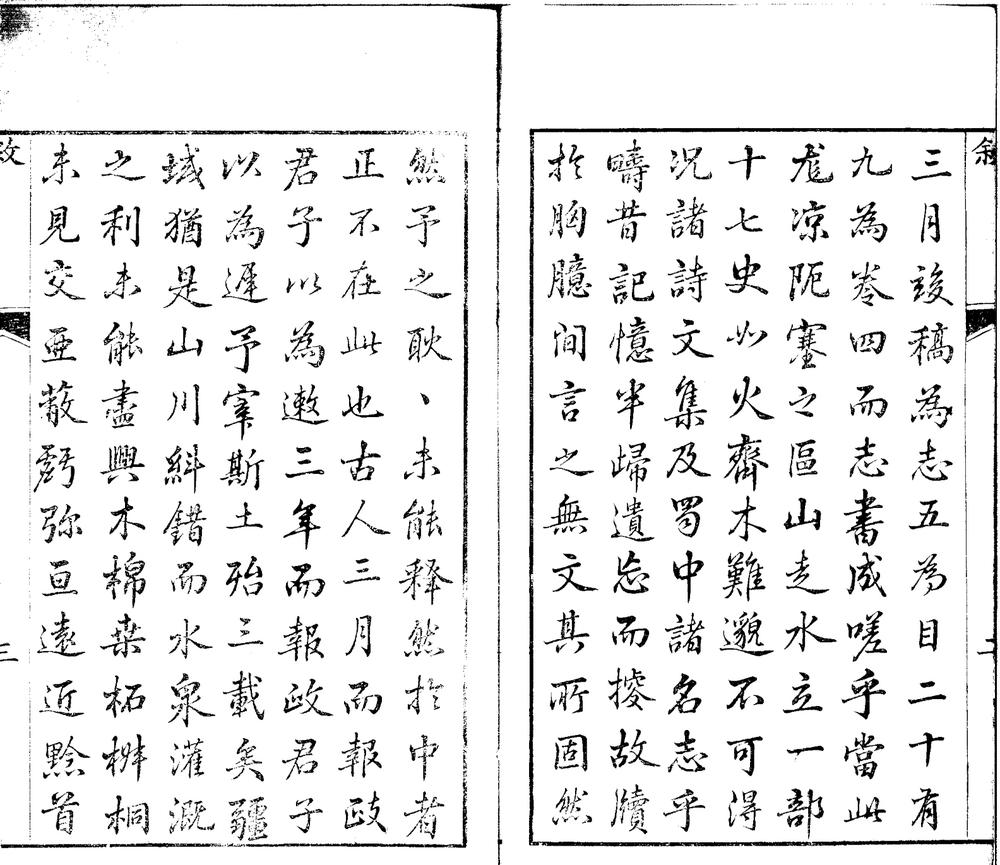 叙
三月竣稿為志五為目二十有
九為卷四而志書成嗟乎當此
尨凉阨塞之區山走水立一部
十七史如火齊木難邈不可得
况諸詩文集及蜀中諸名志乎
疇昔記憶半歸遺忘而搜故牘
扵胸臆间言之無文其所固然
然予之耿丶未能釋然扵中者
正不在此也古人三月而報政
君子以為遬三年而報政君子
以為遲予宰斯土殆三載矣疆
域猶是山川斜錯而水泉灌溉
之利未能盡興木棉桒柘桝桐
未見交亜蔽虧弥亘遠近黔首
三